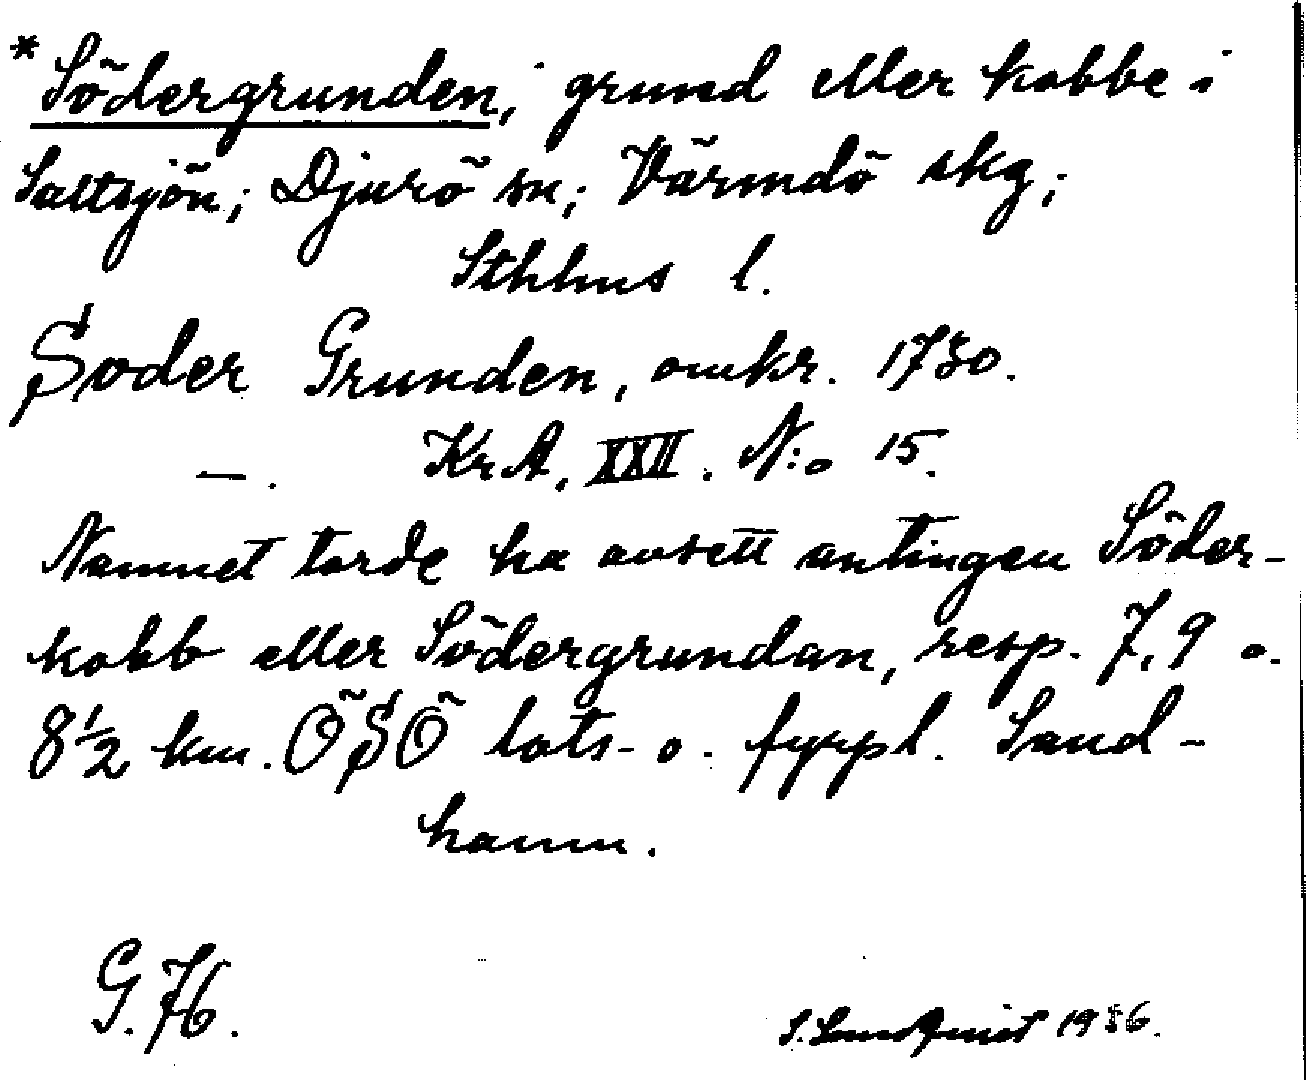 *Södergrunden, grund eller kobbe i
Saltsjön; Djurö sn; Värmdö skg;
Sthlms l.
Soder Grunden, omkr. 1730.
—. KrA, XXII. N:o 15.
Namnet torde ha avsett antingen Söder-
kobb eller Södergrundan, resp. 7,9 o.
8½ km. ÖSÖ lots- o. fyrpl. Sand-
hamn.
G. H.
S. Landquist 19